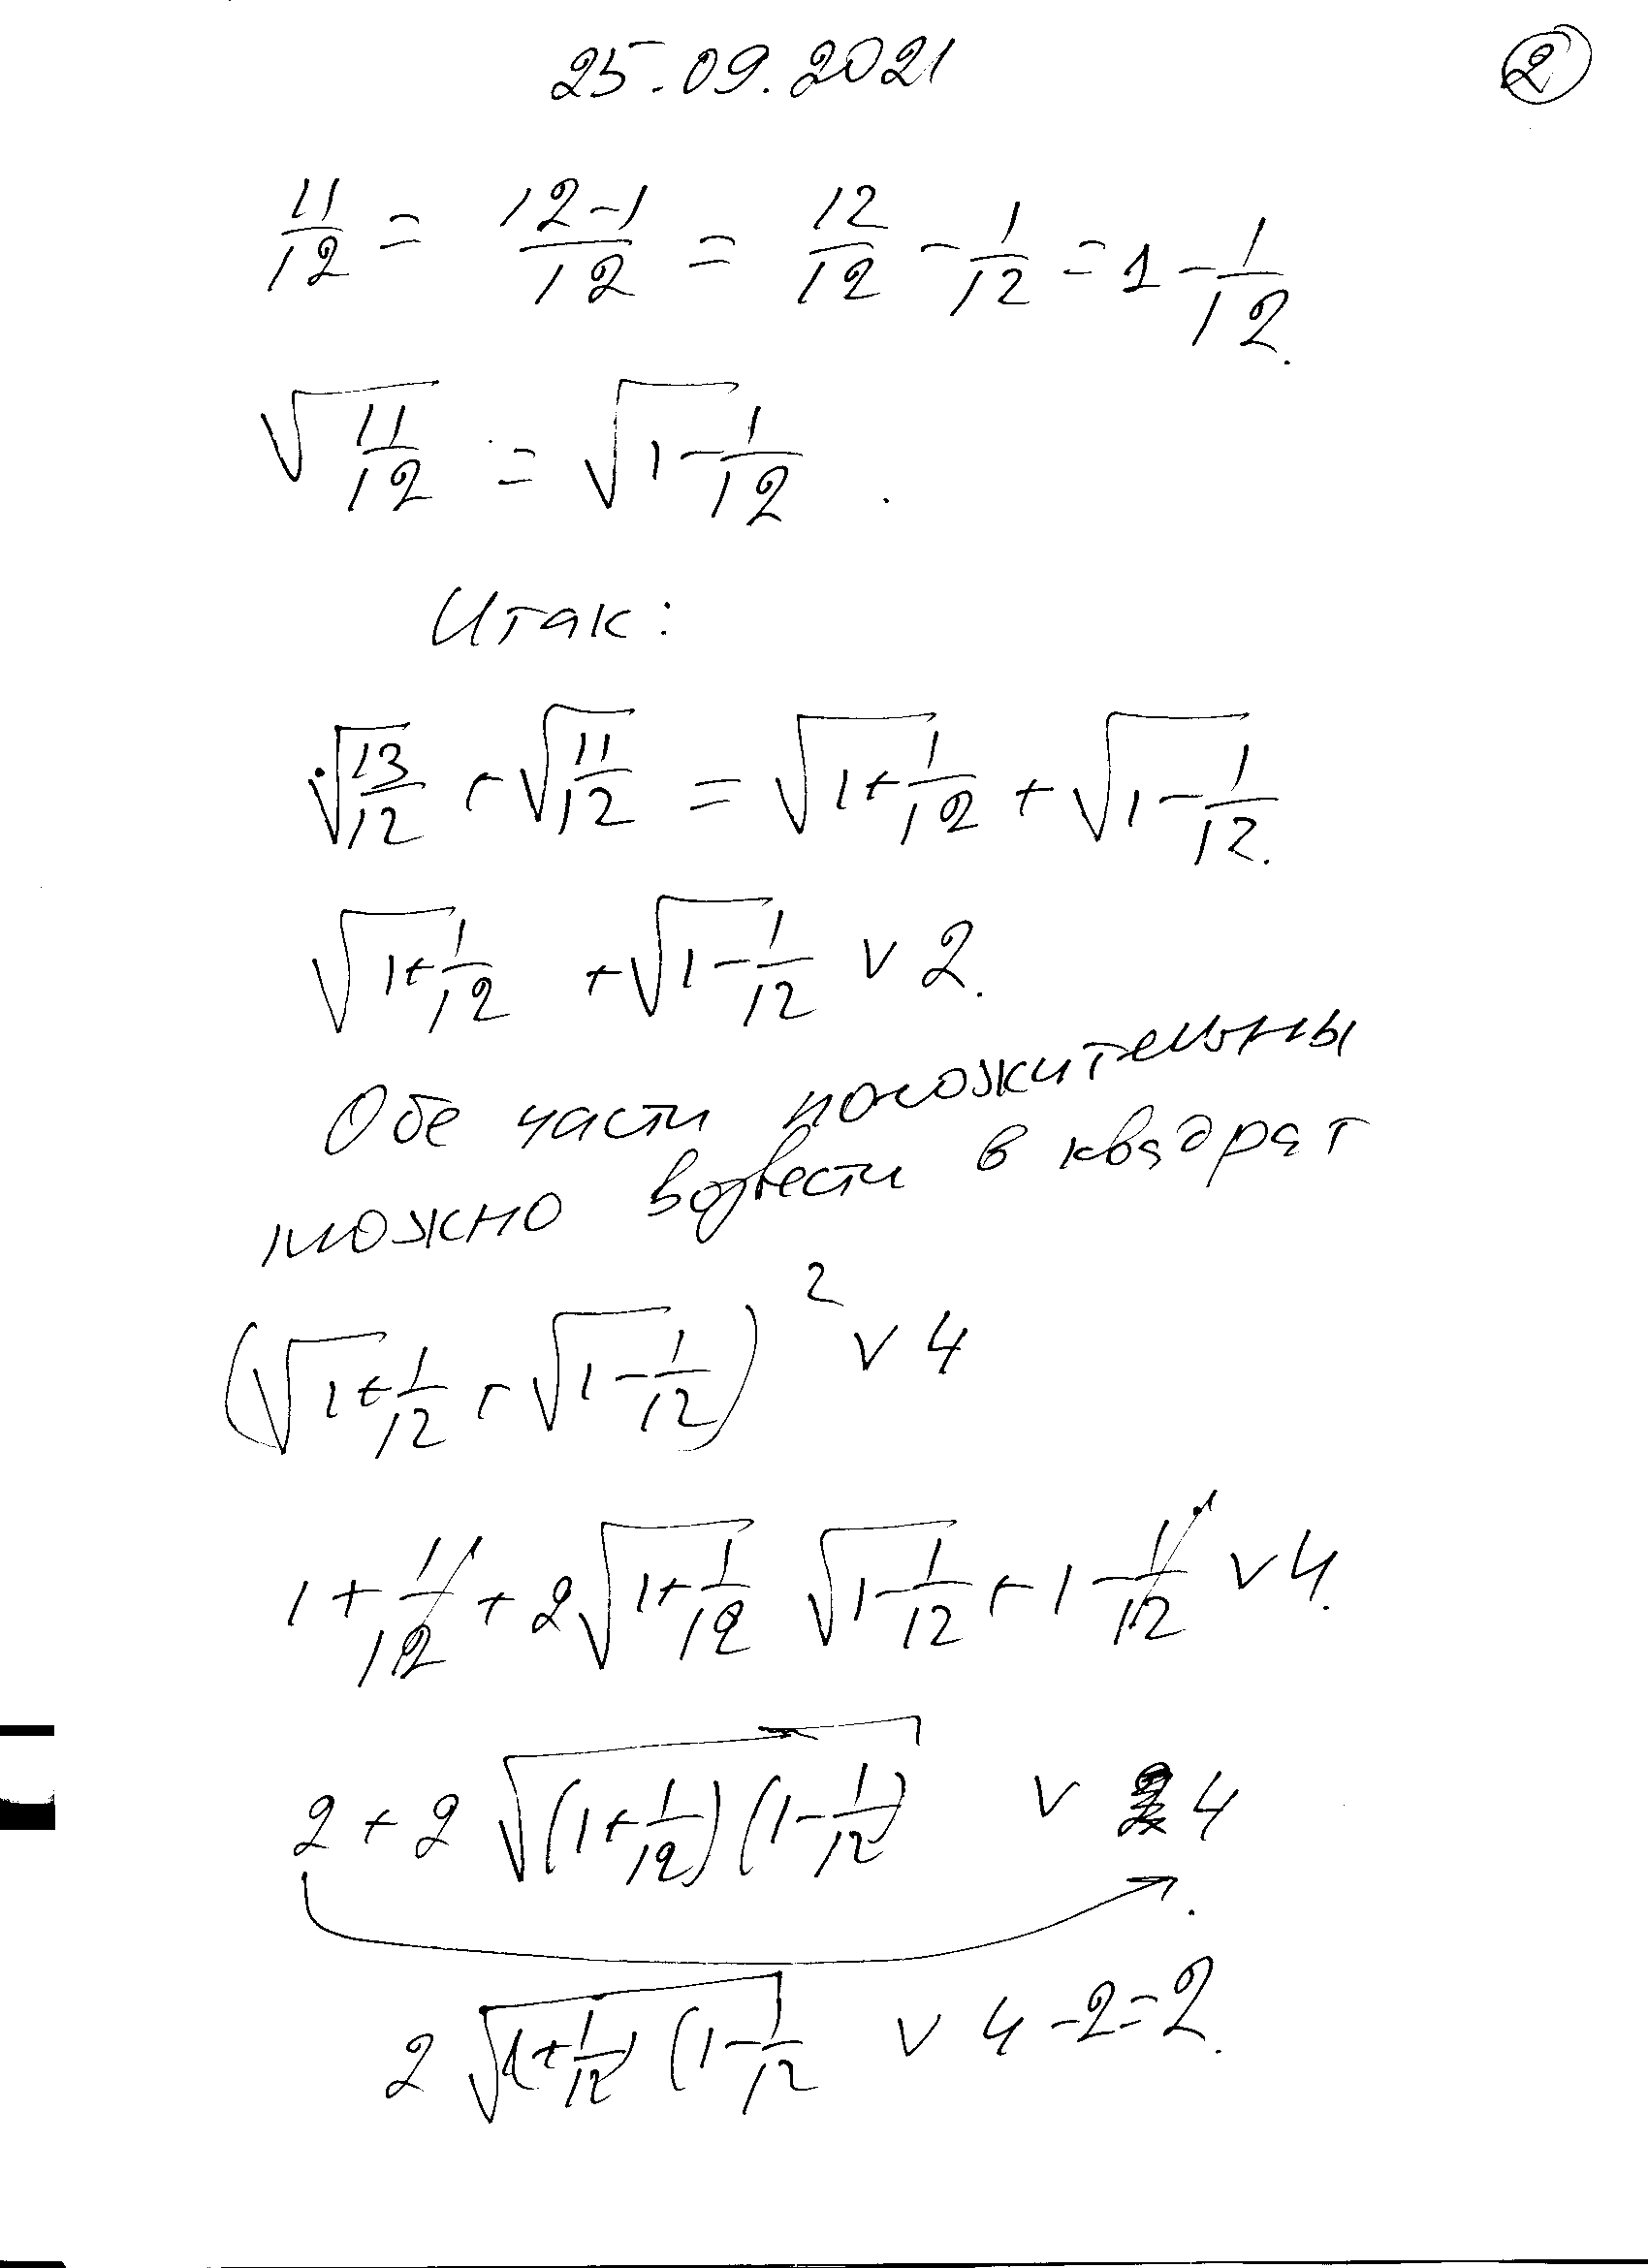 25.09.2021 ②
11/12 = (12-1)/12 = 12/12 - 1/12 = 1 - 1/12.
√(11/12) = √(1 - 1/12).
Итак:
√(13/12) + √(11/12) = √(1 + 1/12) + √(1 - 1/12).
√(1 + 1/12) + √(1 - 1/12) ∨ 2.
Обе части положительны
можно возвести в квадрат
(√(1 + 1/12) + √(1 - 1/12))² ∨ 4
1 + 1/12 + 2√(1 + 1/12) √(1 - 1/12) + 1 - 1/12 ∨ 4.
2 + 2√((1 + 1/12)(1 - 1/12)) ∨ 4.
2√(1 + 1/12)(1 - 1/12 ∨ 4 - 2 = 2.